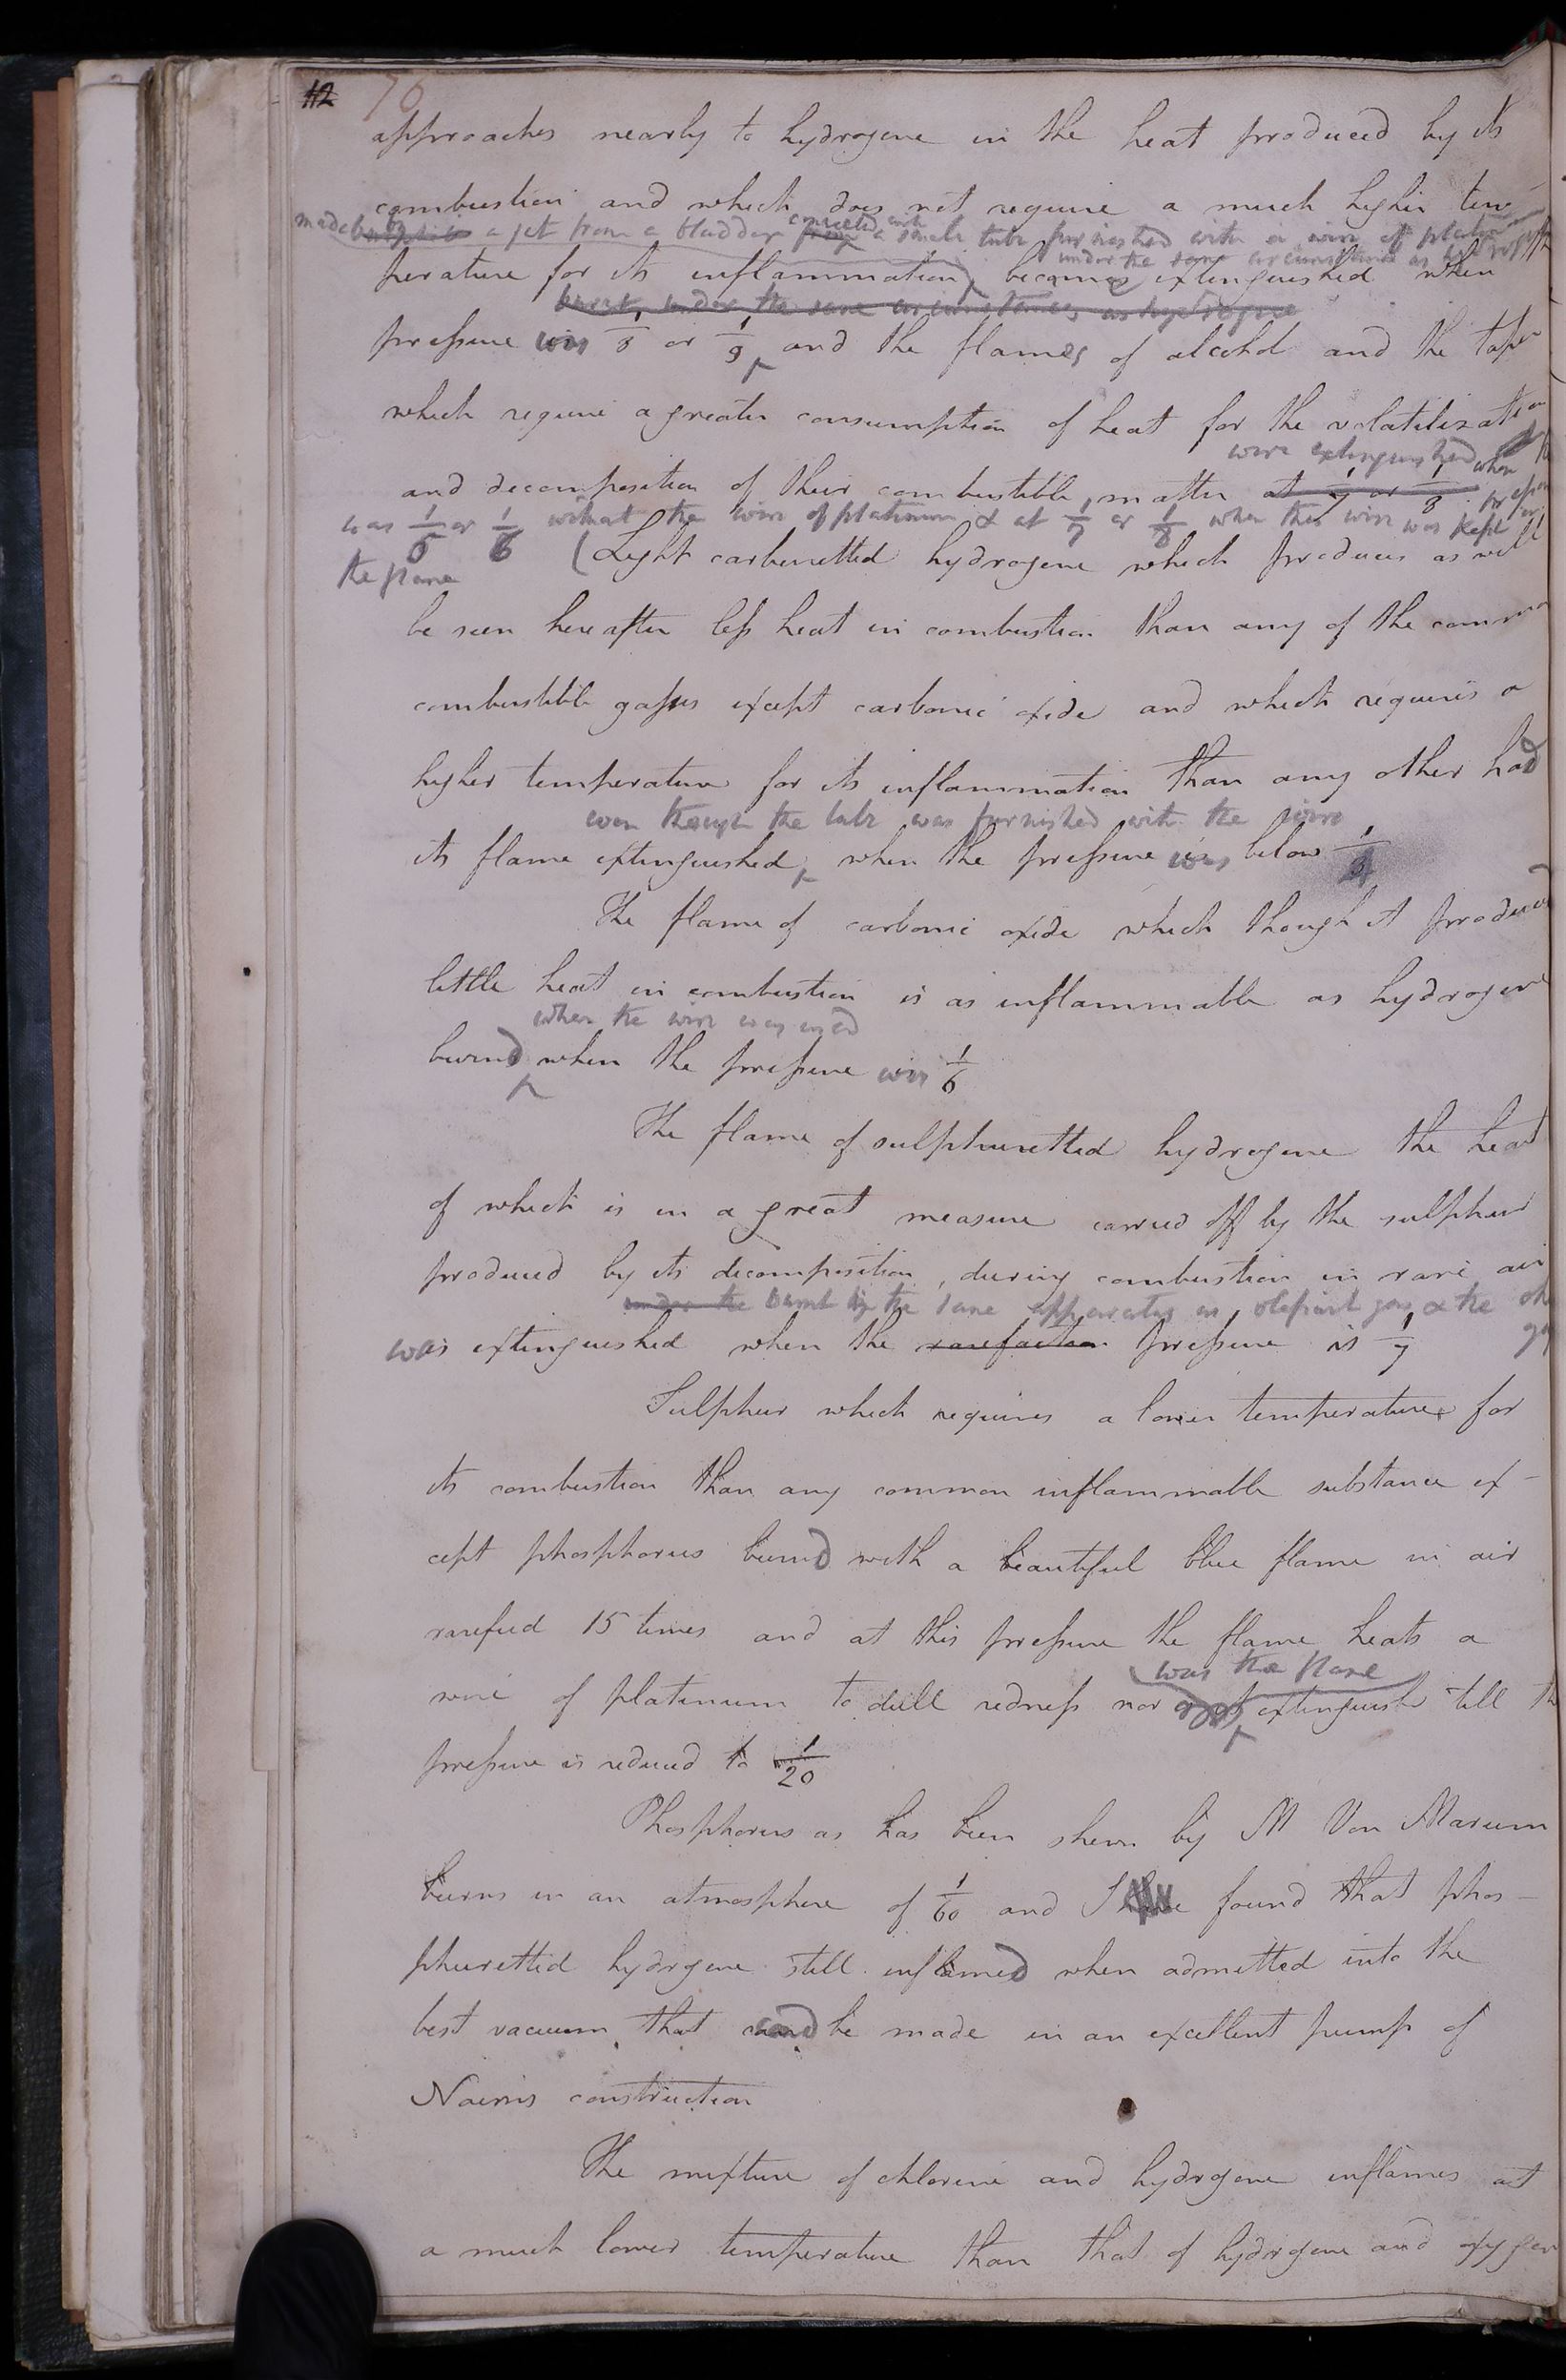 112 70
approaches nearly to hydrogene in the heat produced by its
combustion and which does not require a much higher tem
made a jet from a bladder connected with a small tube furnished with a wire of platinum
under the same circumstances as hydrogene
perature for its inflammation, becomes extinguished when
burnt, under the same circumstances as hydrogene
pressure was 1/8 or 1/9, and the flames of alcohol and the taper
which require a greater consumption of heat for the volatilization
were extinguished when the
and decomposition of their combustible matter at 1/7 or 1/8 pressure
was 1/5 or 1/6 without the wire of platinum & at 1/7 or 1/8 when the wire was kept in
the flame
(Light carburetted hydrogene which produces as will
be seen hereafter less heat in combustion than any of the common
combustible gasses except carbonic oxide and which requires a
higher temperature for its inflammation than any other had
even though the tube was furnished with the wire
its flame extinguished, when the pressure was below 1/4
The flame of carbonic oxide which though it produces
little heat in combustion is as inflammable as hydrogene
when the wire was used
burned when the pressure was 1/6
The flame of sulphuretted hydrogene the heat
of which is in a great measure carried off by the sulphur
produced by its decomposition, during combustion in rare air
under the burnt by the same apparatus as olefiant gas & the other
gas
was extinguished when the rarefaction pressure is 1/7
Sulphur which requires a lower temperature for
its combustion than any common inflammable substance ex-
cept phosphorus burned with a beautiful blue flame in air
rarefied 15 times and at this pressure the flame heats a
was the flame
wire of platinum to dull redness nor extinguish till the
pressure is reduced to 1/20
Phosphorus as has been shewn by M Van Marum
burns in an atmosphere of 1/60 and I have found that phos-
phuretted hydrogene still inflamed when admitted into the
best vacuum that could be made in an excellent pump of
Nairns construction
The mixture of chlorine and hydrogene inflames at
a much lower temperature than that of hydrogene and oxygene